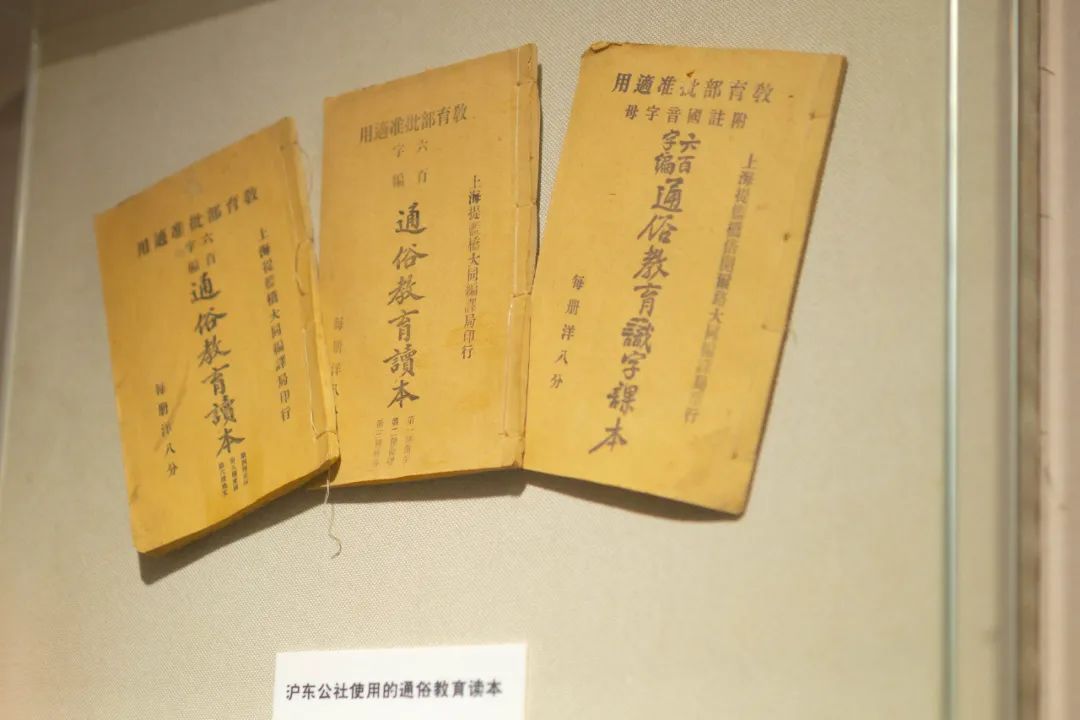 教育部批准適用
六百字編
通俗教育讀本
上海提籃橋大同編譯局印行
每册洋八分
教育部批准適用
六百字編
通俗教育讀本
上海提籃橋大同編譯局印行
每册洋八分
教育部批准適用
附註國音字母
六百字編
通俗教育識字課本
每册洋八分
沪东公社使用的通俗教育读本